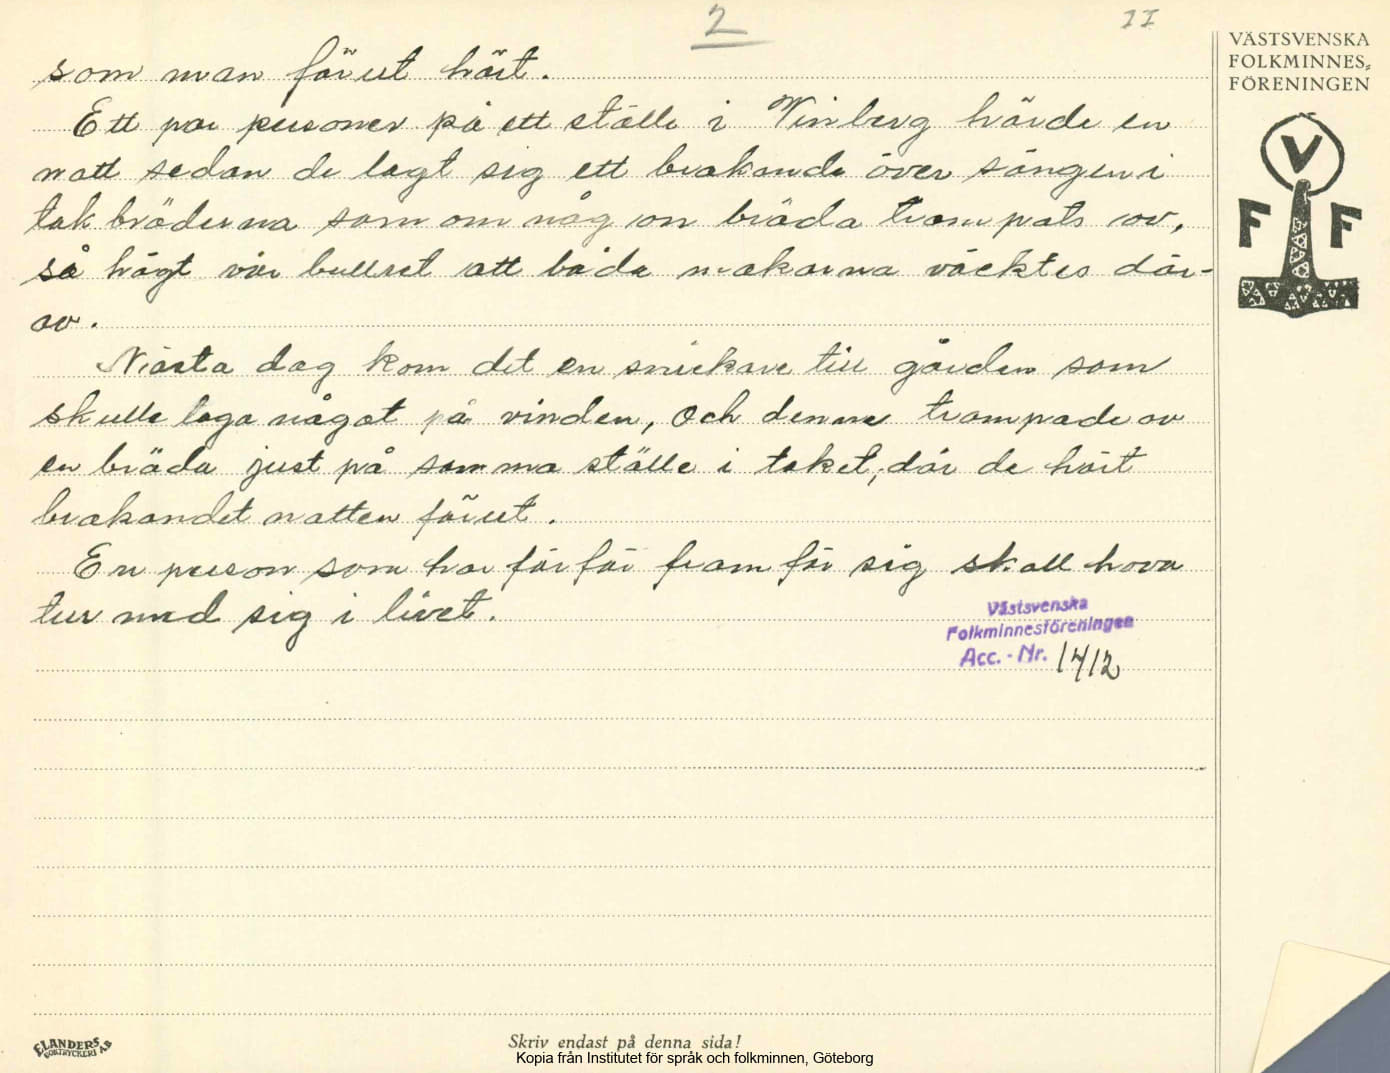 2
II
som man förut hört.
Ett par personer på ett ställe i Vinberg hörde en
natt sedan de lagt sig ett brakande över sängen i
takbräderna som om någon bräda trampats av,
så högt var bullret att båda makarna väcktes där-
av.
Nästa dag kom det en snickare till gården som
skulle laga något på vinden, och denne trampade av
en bräda just på samma ställe i taket, där de hört
brakandet natten förut.
En person som har förför framför sig skall hava
tur med sig i livet.
Västsvenska
Folkminnesföreningen
Acc. - Nr. 1412
VÄSTSVENSKA
FOLKMINNES-
FÖRENINGEN
V
F F
ELANDERS
BOKTRYCKERI AB
Skriv endast på denna sida!
Kopia från Institutet för språk och folkminnen, Göteborg